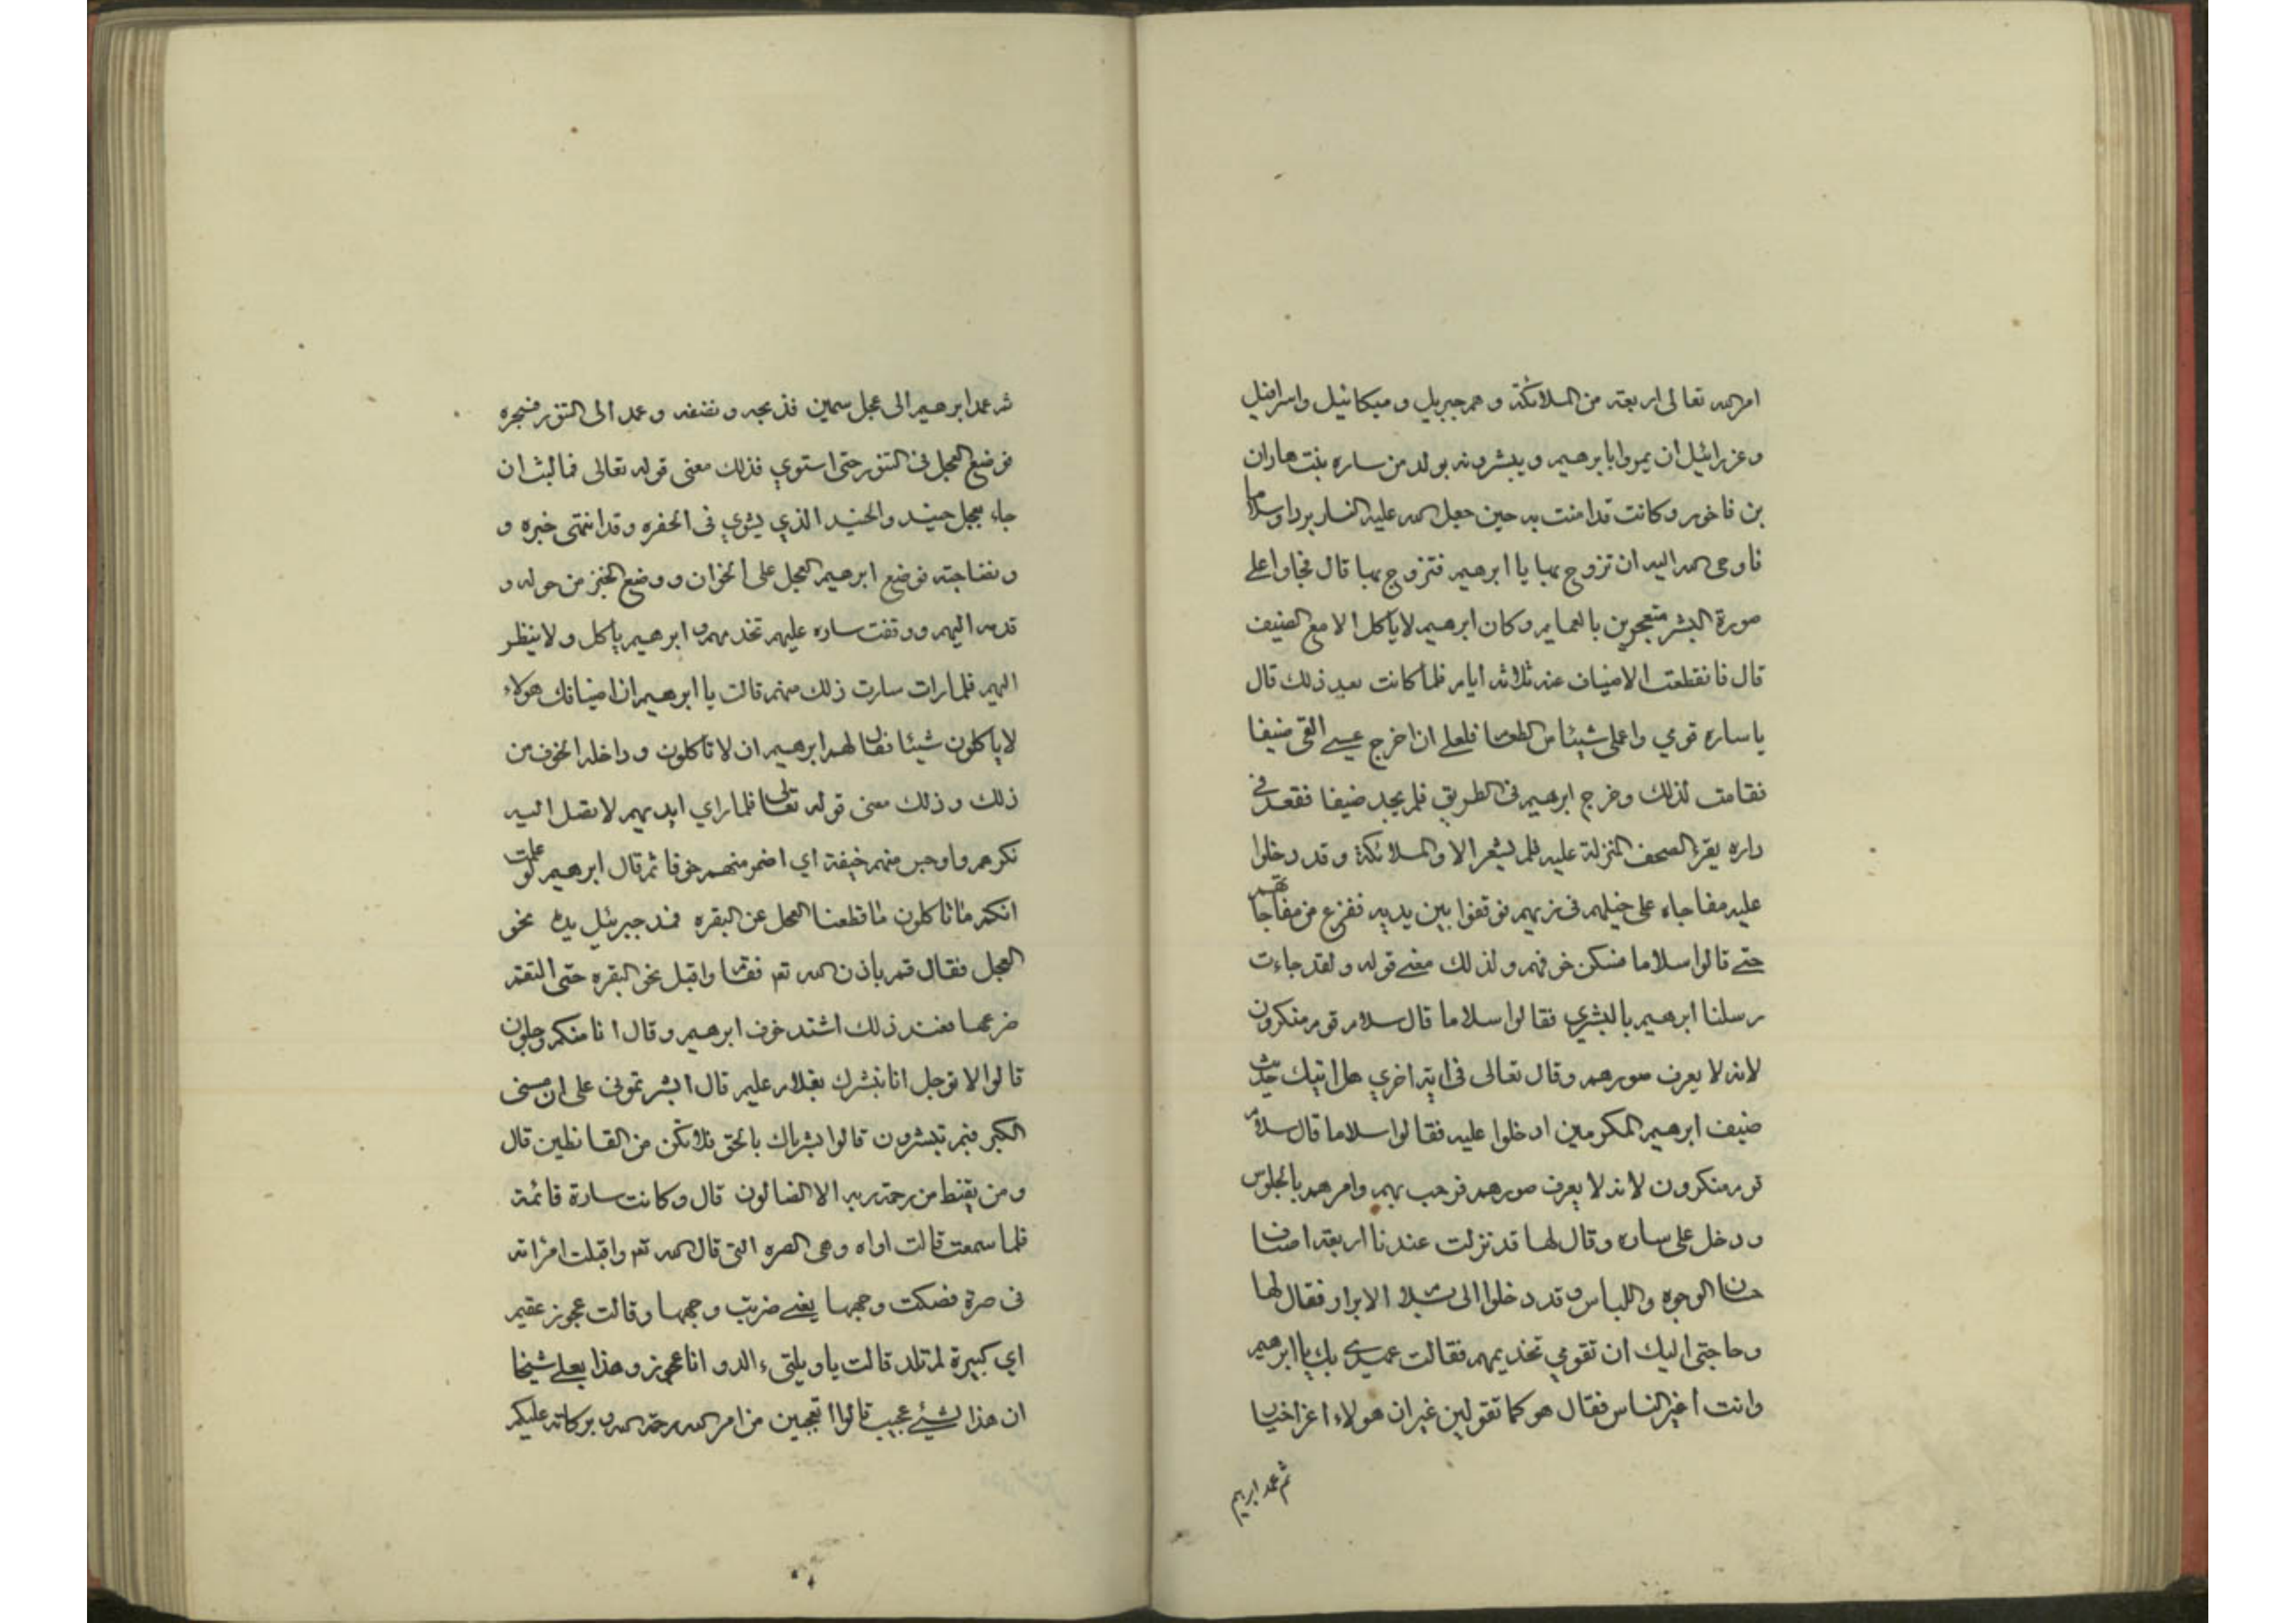 امر الله تعالى اربعة من الملائكة وهم جبريل وميكائيل واسرافيل
وعزرائيل ان يمروا بابرهيم ويبشرونه بولد من ساره بنت هاران
بن ناخور وكانت قد امنت به حين جعل الله عليه النار بردا وسلاما
فاوحى الله اليه ان تزوج بها يا ابرهيم فتزوج بها قال فجاوا على
صورة البشر متعجرين بالعمايم وكان ابرهيم لا ياكل الا مع الضيف
قال فانقطعت الاضياف عنه ثلاثة ايام فلما كانت بعد ذلك قال
يا ساره قومي واعملي شيئا من الطعام فلعلي ان اخرج عسى القى ضيفا
فقامت لذلك وخرج ابرهيم في الطريق فلم يجد ضيفا فقعد في
داره يقرء الصحف المنزلة عليه فلم يشعر الا والملائكة وقد دخلوا
عليه مفاجاه على خيلهم في زيهم فوقفوا بين يديه ففزع من مفاجاتهم
حتى قالوا سلاما فسكن خوفهم ولذلك معنى قوله ولقد جاءت
رسلنا ابرهيم بالبشري فقالوا سلاما قال سلام قوم منكرون
لانه لا يعرف صورهم وقال تعالى في اية اخري هل اتيك حديث
ضيف ابرهيم المكرمين اد خلوا عليه فقالوا سلاما قال سلام
قوم منكرون لانه لا يعرف صورهم فرحب بهم وامرهم بالجلوس
ودخل على ساره وقال لها قد نزلت عندنا اربعة اضياف
حسان الوجوه واللباس وقد دخلوا الى بسلام الابرار فقال لها
وحاجتي اليك ان تقومي تخديمهم فقالت عهدي بك يا ابرهيم
وانت اغير الناس فقال هو كما تقولين غير ان هولاء اعز اخيار
ثم عمد ابرهيم
ثم عمد ابرهيم الى عجل سمين فذبحه ونضفه وعمد الى التنور فسجره
فوضع العجل في التنور حتى استوي فذلك معنى قوله تعالى فما لبث ان
جاء بعجل حنيد والحنيد الذي يشوي في الحفره وقد انتهى خبزه و
ونضاجته فوضع ابرهيم العجل على الخوان ووضع الخبز من حوله و
قدمه اليهم ووقفت ساره عليهم تخدمهم وابرهيم ياكل ولا ينظر
اليهم فلما رات سارت ذلك منهم قالت يا ابرهيم ان اضيافك هولاء
لا ياكلون شيئا فقال لهم ابرهيم ان لا تاكلون وداخله الخوف من
ذلك وذلك معنى قوله تعالى فلما راي ايديهم لا تصل اليه
نكرهم واوجس منهم خيفة اي اضمر منهم خوفا ثم قال ابرهيم لو علمت
انكم ما تاكلون ما قطعنا العجل عن البقره فمد جبرئيل يده نحو
العجل فقال قم باذن الله تع فقام واقبل نحو البقره حتى التقم
ضرعها فعند ذلك اشتد خوف ابرهيم وقال انا منكم وجلون
قالوا لا توجل انا نبشرك بغلام عليم قال ابشرتموني على ان مسني
الكبر فبم تبشرون قالوا بشرناك بالحق فلا تكن من القانطين قال
ومن يقنط من رحمة ربه الا الضالون قال وكانت سارة قائمة
فلما سمعت قالت اواه وهي الصره التي قال الله تع واقبلت امراته
في صرة فصكت وجهها يعني ضربت وجهها وقالت عجوز عقيم
اي كبيرة لم تلد قالت يا ويلتي ءالد وانا عجوز وهذا بعلي شيخا
ان هذا لشيئ عجيب قالوا اتعجبين من امر الله رحمة الله وبركاته عليكم